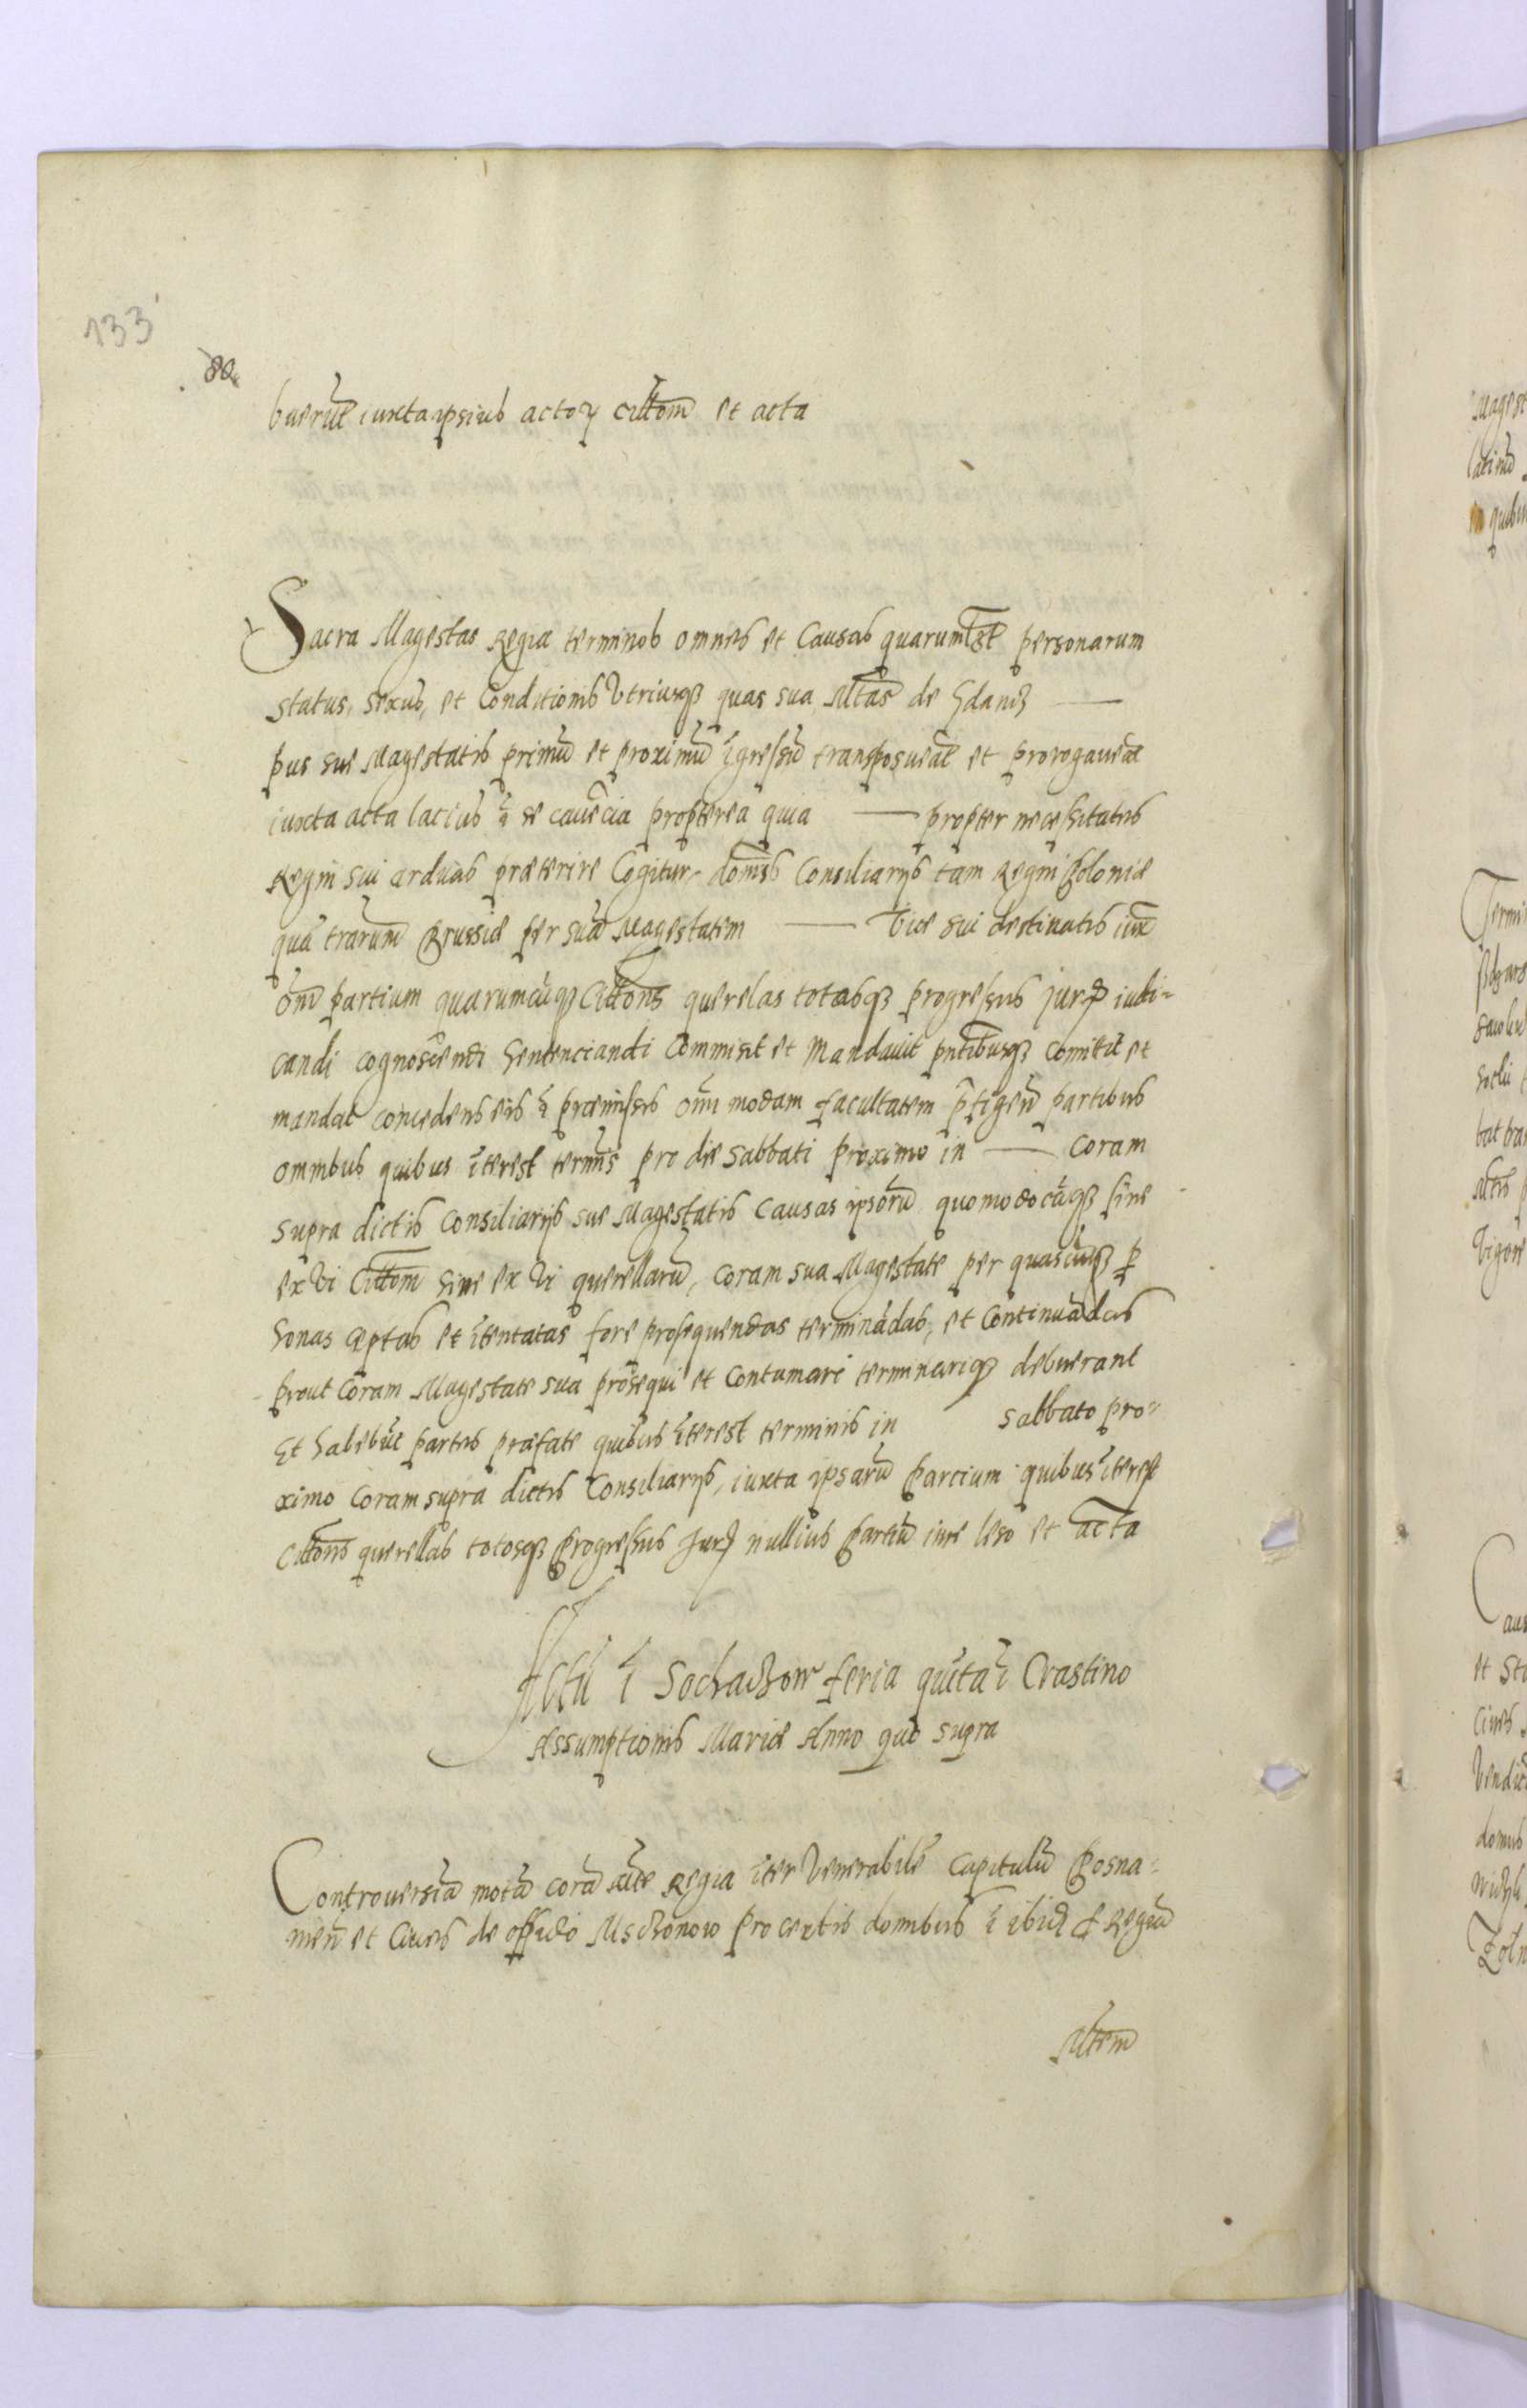 133
buerũt iuxta ipsius actoꝝ cittom̃ et acta
Sacra Magestas Regia terminos omnes et Causas quarumlĩbt personarum
status, sexus, et Conditionis Vtriusqꝫ quas sua Mtãs de Gdansʒ —
pus sue Magestatis primũ et proximũ ĩgressũ transposuerãt et prorogauerãt
iuxta acta lacius ĩ se cauẽcia propterea quia — propter necessitates
Regni sui arduas præterire Cogitur dom̃s Consiliarijs tam Regni Poloniæ
quã trarum̃ Prussiæ per suã Magestatem — Vice sui destinatis iux̃
om̃ partium quarumcũqꝫ Cittom̃s querelas totasqꝫ progressus jurꝭ iudi=
candi cognoscẽndi Sentenciandi Commisit et Mandauit pñtibusqꝫ Comitit et
mandat concedens eis ĩ præmissis om̃i modam facultatem p̃figeñ partibus
omnibus quibus ĩterest term̃s pro die Sabbati proximo in — Coram
supra dictis Consiliarijs sue Magestatis Causas ipsorũ quomodocũqꝫ siue
ex Vi Cittom̃ Siue ex Vi querellarũ, Coram sua Magestate per quascũqꝫ ꝑ
sonas ceptas et ĩtentatas fore prosequendas terminãdas, et Continuãdas
prout Coram Magestate sua prosequi et Contumari terminariqꝫ debuerant
Et habebũt partes præfate quibus ĩterest terminis in Sabbato pro=
ximo Coram supra dictis Consiliarijs, iuxta ipsarũ Parcium quibus ĩterest
Cittom̃s querellas totosqꝫ Progressus Jurꝭ nullius Partiũ iure leso et acta
Actũ ĩ Sochaczow feria quĩta ĩ Crastino
Assumptionis Mariæ Anno quo supra
Controuersiã motã corã Mte Regia ĩter Venerabilẽ Capitulũ Posna=
nieñ et Ciues de oppido Msczonow pro certis domibus ĩ ibidꝫ ꝑ Regiã
Mtem̃